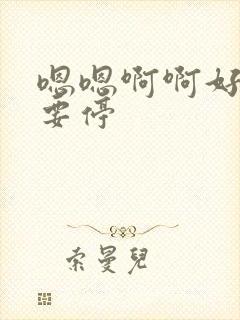 嗯嗯啊啊好
要停
索曼兒